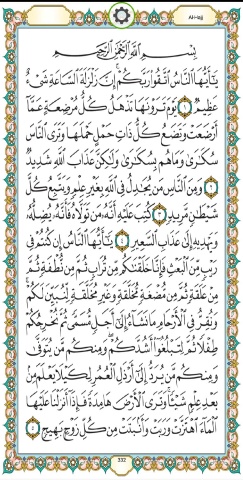 Al-Hajj
بِسْمِ اللَّهِ الرَّحْمَٰنِ الرَّحِيمِ
يَا أَيُّهَا النَّاسُ اتَّقُوا رَبَّكُمْ ۚ إِنَّ زَلْزَلَةَ السَّاعَةِ شَيْءٌ
عَظِيمٌ ١ يَوْمَ تَرَوْنَهَا تَذْهَلُ كُلُّ مُرْضِعَةٍ عَمَّا
أَرْضَعَتْ وَتَضَعُ كُلُّ ذَاتِ حَمْلٍ حَمْلَهَا وَتَرَى النَّاسَ
سُكَارَىٰ وَمَا هُمْ بِسُكَارَىٰ وَلَٰكِنَّ عَذَابَ اللَّهِ شَدِيدٌ
٢ وَمِنَ النَّاسِ مَنْ يُجَادِلُ فِي اللَّهِ بِغَيْرِ عِلْمٍ وَيَتَّبِعُ كُلَّ
شَيْطَانٍ مَرِيدٍ ٣ كُتِبَ عَلَيْهِ أَنَّهُ مَنْ تَوَلَّاهُ فَأَنَّهُ يُضِلُّهُ
وَيَهْدِيهِ إِلَىٰ عَذَابِ السَّعِيرِ ٤ يَا أَيُّهَا النَّاسُ إِنْ كُنْتُمْ فِي
رَيْبٍ مِنَ الْبَعْثِ فَإِنَّا خَلَقْنَاكُمْ مِنْ تُرَابٍ ثُمَّ مِنْ نُطْفَةٍ ثُمَّ
مِنْ عَلَقَةٍ ثُمَّ مِنْ مُضْغَةٍ مُخَلَّقَةٍ وَغَيْرِ مُخَلَّقَةٍ لِنُبَيِّنَ لَكُمْ ۚ
وَنُقِرُّ فِي الْأَرْحَامِ مَا نَشَاءُ إِلَىٰ أَجَلٍ مُسَمًّى ثُمَّ نُخْرِجُكُمْ
طِفْلًا ثُمَّ لِتَبْلُغُوا أَشُدَّكُمْ ۖ وَمِنْكُمْ مَنْ يُتَوَفَّىٰ
وَمِنْكُمْ مَنْ يُرَدُّ إِلَىٰ أَرْذَلِ الْعُمُرِ لِكَيْلَا يَعْلَمَ مِنْ
بَعْدِ عِلْمٍ شَيْئًا ۚ وَتَرَى الْأَرْضَ هَامِدَةً فَإِذَا أَنْزَلْنَا عَلَيْهَا
الْمَاءَ اهْتَزَّتْ وَرَبَتْ وَأَنْبَتَتْ مِنْ كُلِّ زَوْجٍ بَهِيجٍ
332